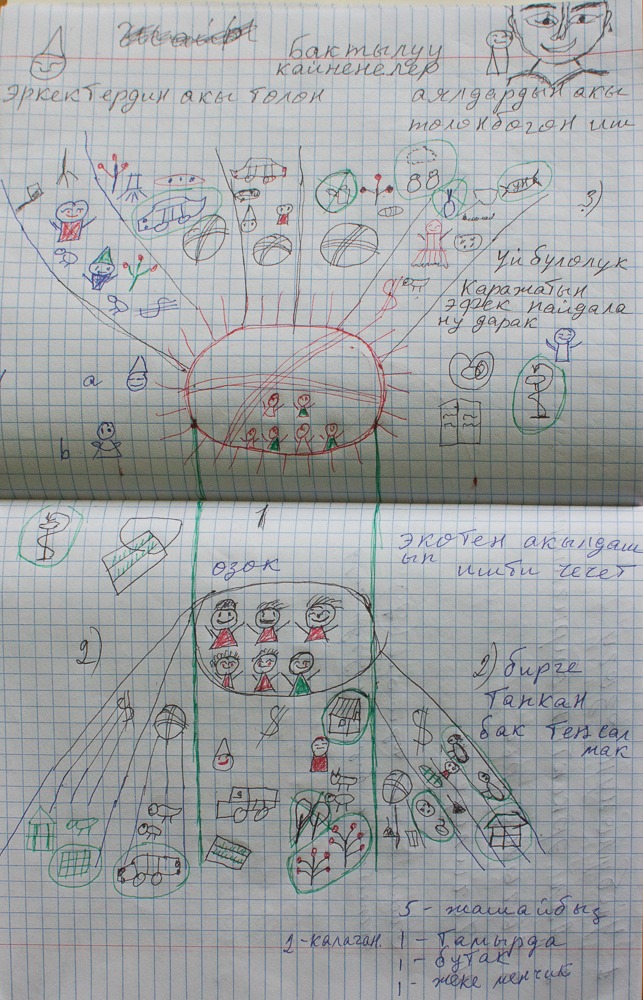 Бактылуу
кайненелер
эркектердин акы толон
аялдардын акы
толонбогон иш
3)
Үй булолук
Каражатын
эрек пайдала
ну дарак
а
b
1
озок
экотен акылдаш
ып ишти чечет
2)
2) бирге
Тапкан
бак тең сал
мак
5 - жашайбыз
2-калаган. 1 - Тамырда
1 - бутак
1 - жеке менчик